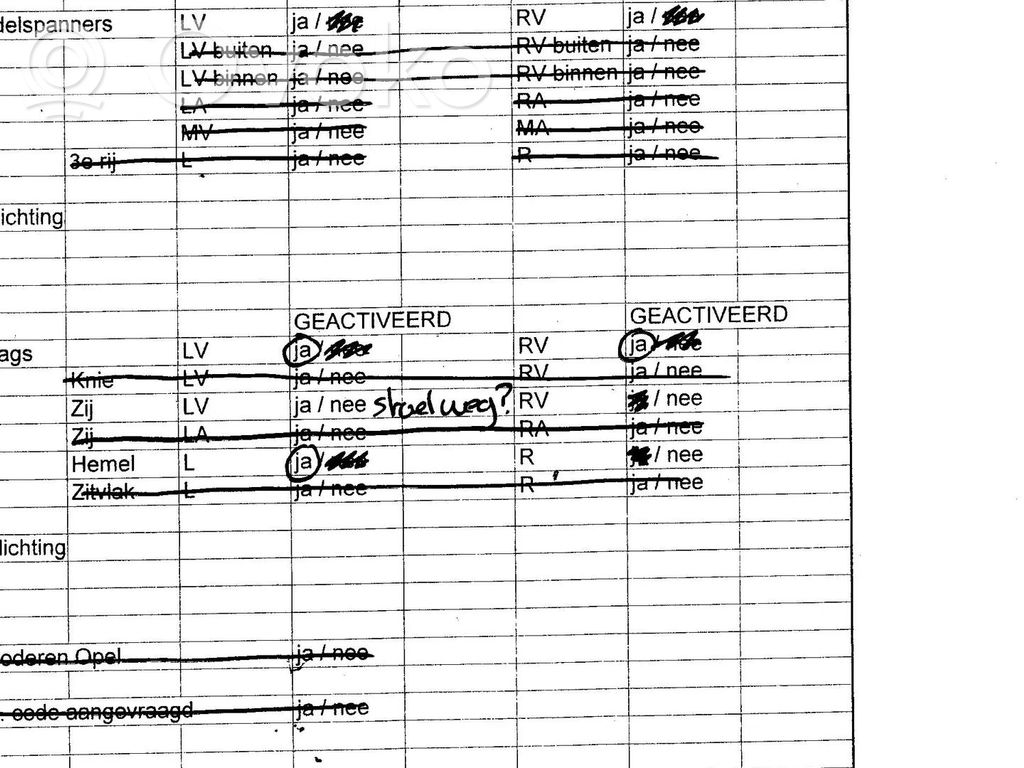 delspanners LV ja / RV ja /
LV buiten ja / nee RV buiten ja / nee
LV binnen ja / nee RV binnen ja / nee
LA ja / nee RA ja / nee
MV ja / nee MA ja / nee
3e rij L ja / nee R ja / nee
ichting
GEACTIVEERD GEACTIVEERD
ags LV ja / nee RV ja / nee
Knie LV ja / nee RV ja / nee
Zij LV ja / nee stoel weg? RV / nee
Zij LA ja / nee RA ja / nee
Hemel L ja / R / nee
Zitvlak L ja / nee R ja / nee
lichting
oderen Opel ja / nee
. code aangevraagd ja / nee